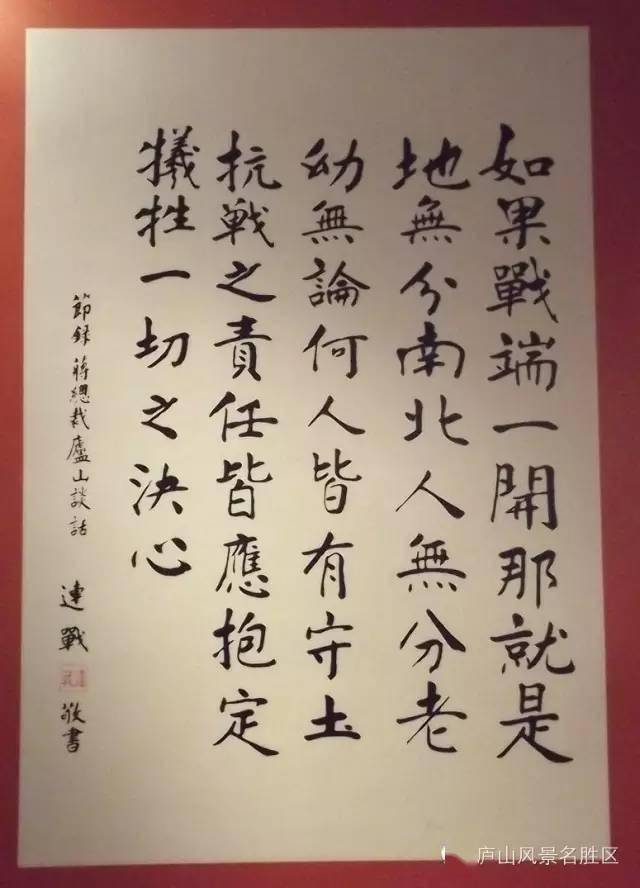 如果戰端一開那就是
地無分南北人無分老
幼無論何人皆有守土
抗戰之責任皆應抱定
犧牲一切之決心
節錄蔣總裁廬山談話
連戰
敬書
庐山风景名胜区